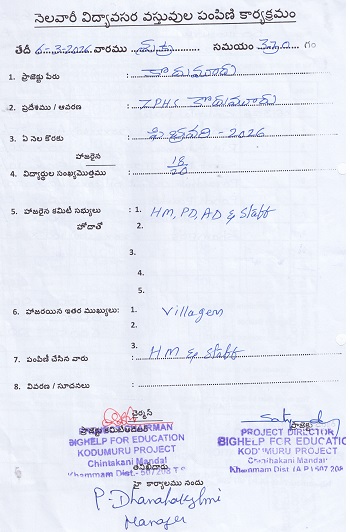 నెలవారీ విద్యావసర వస్తువుల పంపిణి కార్యక్రమం
తేదీ 6-3-2026 వారము శుక్ర సమయం 3-10 గం
1. ప్రాజెక్టు పేరు : కొదుమూరు
2. ప్రదేశము / ఆవరణ : ZPHS కొదుమూరు
3. ఏ నెల కొరకు : ఫిబ్రవరి - 2026
హాజరైన
4. విద్యార్థుల సంఖ్య/మొత్తము : 18/20
5. హాజరైన కమిటీ సభ్యులు : 1. HM, PD, AD & Staff
హోదాతో 2.
3.
4.
5.
6. హాజరయిన ఇతర ముఖ్యులు: 1. Villagers
2.
3.
7. పంపిణి చేసిన వారు : HM & Staff
8. వివరణ / సూచనలు :
చైర్మన్
ప్రాజెక్టు
BIGHELP FOR EDUCATION
KODUMURU PROJECT
Chintakani Mandal
Khammam Dist.- 507 208 T S
PROJECT DIRECTOR
BIGHELP FOR EDUCATIO
KODUMURU PROJECT
Chinthakani Mandal
Khammam Dist (A P) 507 208
తనిఖీదారు
హై కార్యాలము నందు
P. Dhanalakshmi
Manager